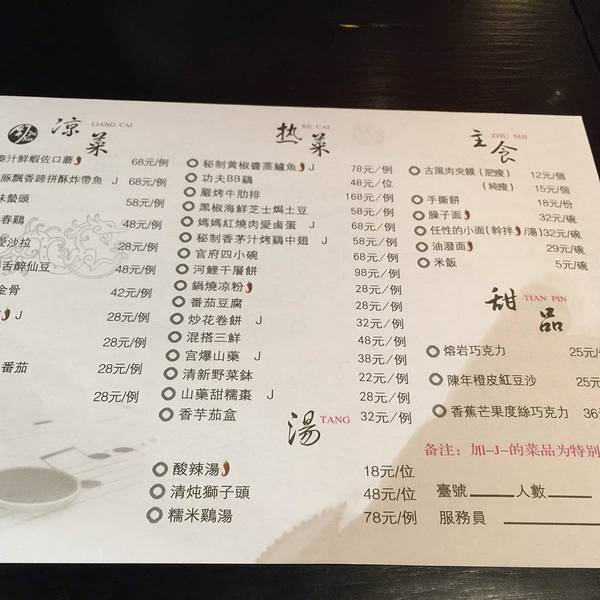 涼菜 LIANG CAI
汁鮮蝦佐口蘑 68元/例
豚飄香蹄拼酥炸帶魚 J 68元/例
味螫頭 58元/例
春鷄 48元/例
沙拉 28元/例
舌醉仙豆 48元/例
金骨 42元/例
J 28元/例
番茄 28元/例
28元/例
热菜 RE CAI
秘制黄椒醬蒸鱸魚 J 78元/例
功夫BB鷄 48元/位
嚴烤牛肋排 168元/例
黑椒海鮮芝士焗土豆 58元/例
媽媽紅燒肉愛鹵蛋 J 58元/例
秘制香茅汁烤鷄中翅 J 58元/例
官府四小碗 68元/例
河鯉千層餅 98元/例
鍋燒凉粉 28元/例
番茄豆腐 28元/例
炒花卷餅 J 32元/例
混搭三鮮 48元/例
宫爆山藥 J 38元/例
清新野菜鉢 22元/例
山藥甜糯棗 J 28元/例
香芋茄盒 32元/例
湯 TANG
酸辣湯 18元/位
清炖獅子頭 48元/位
糯米鷄湯 78元/例
主食 ZHU SHI
古風肉夾饃 (肥瘦) 12元/個
(純瘦) 15元/個
手撕餅 18元/份
臊子面 32元/碗
任性的小面(幹拌/湯) 32元/碗
油潑面 29元/碗
米飯 5元/碗
甜品 TIAN PIN
熔岩巧克力 25元/
陳年橙皮紅豆沙 25元/
香蕉芒果度絲巧克力 36
备注：加-J-的菜品为特别
臺號 人數
服務員